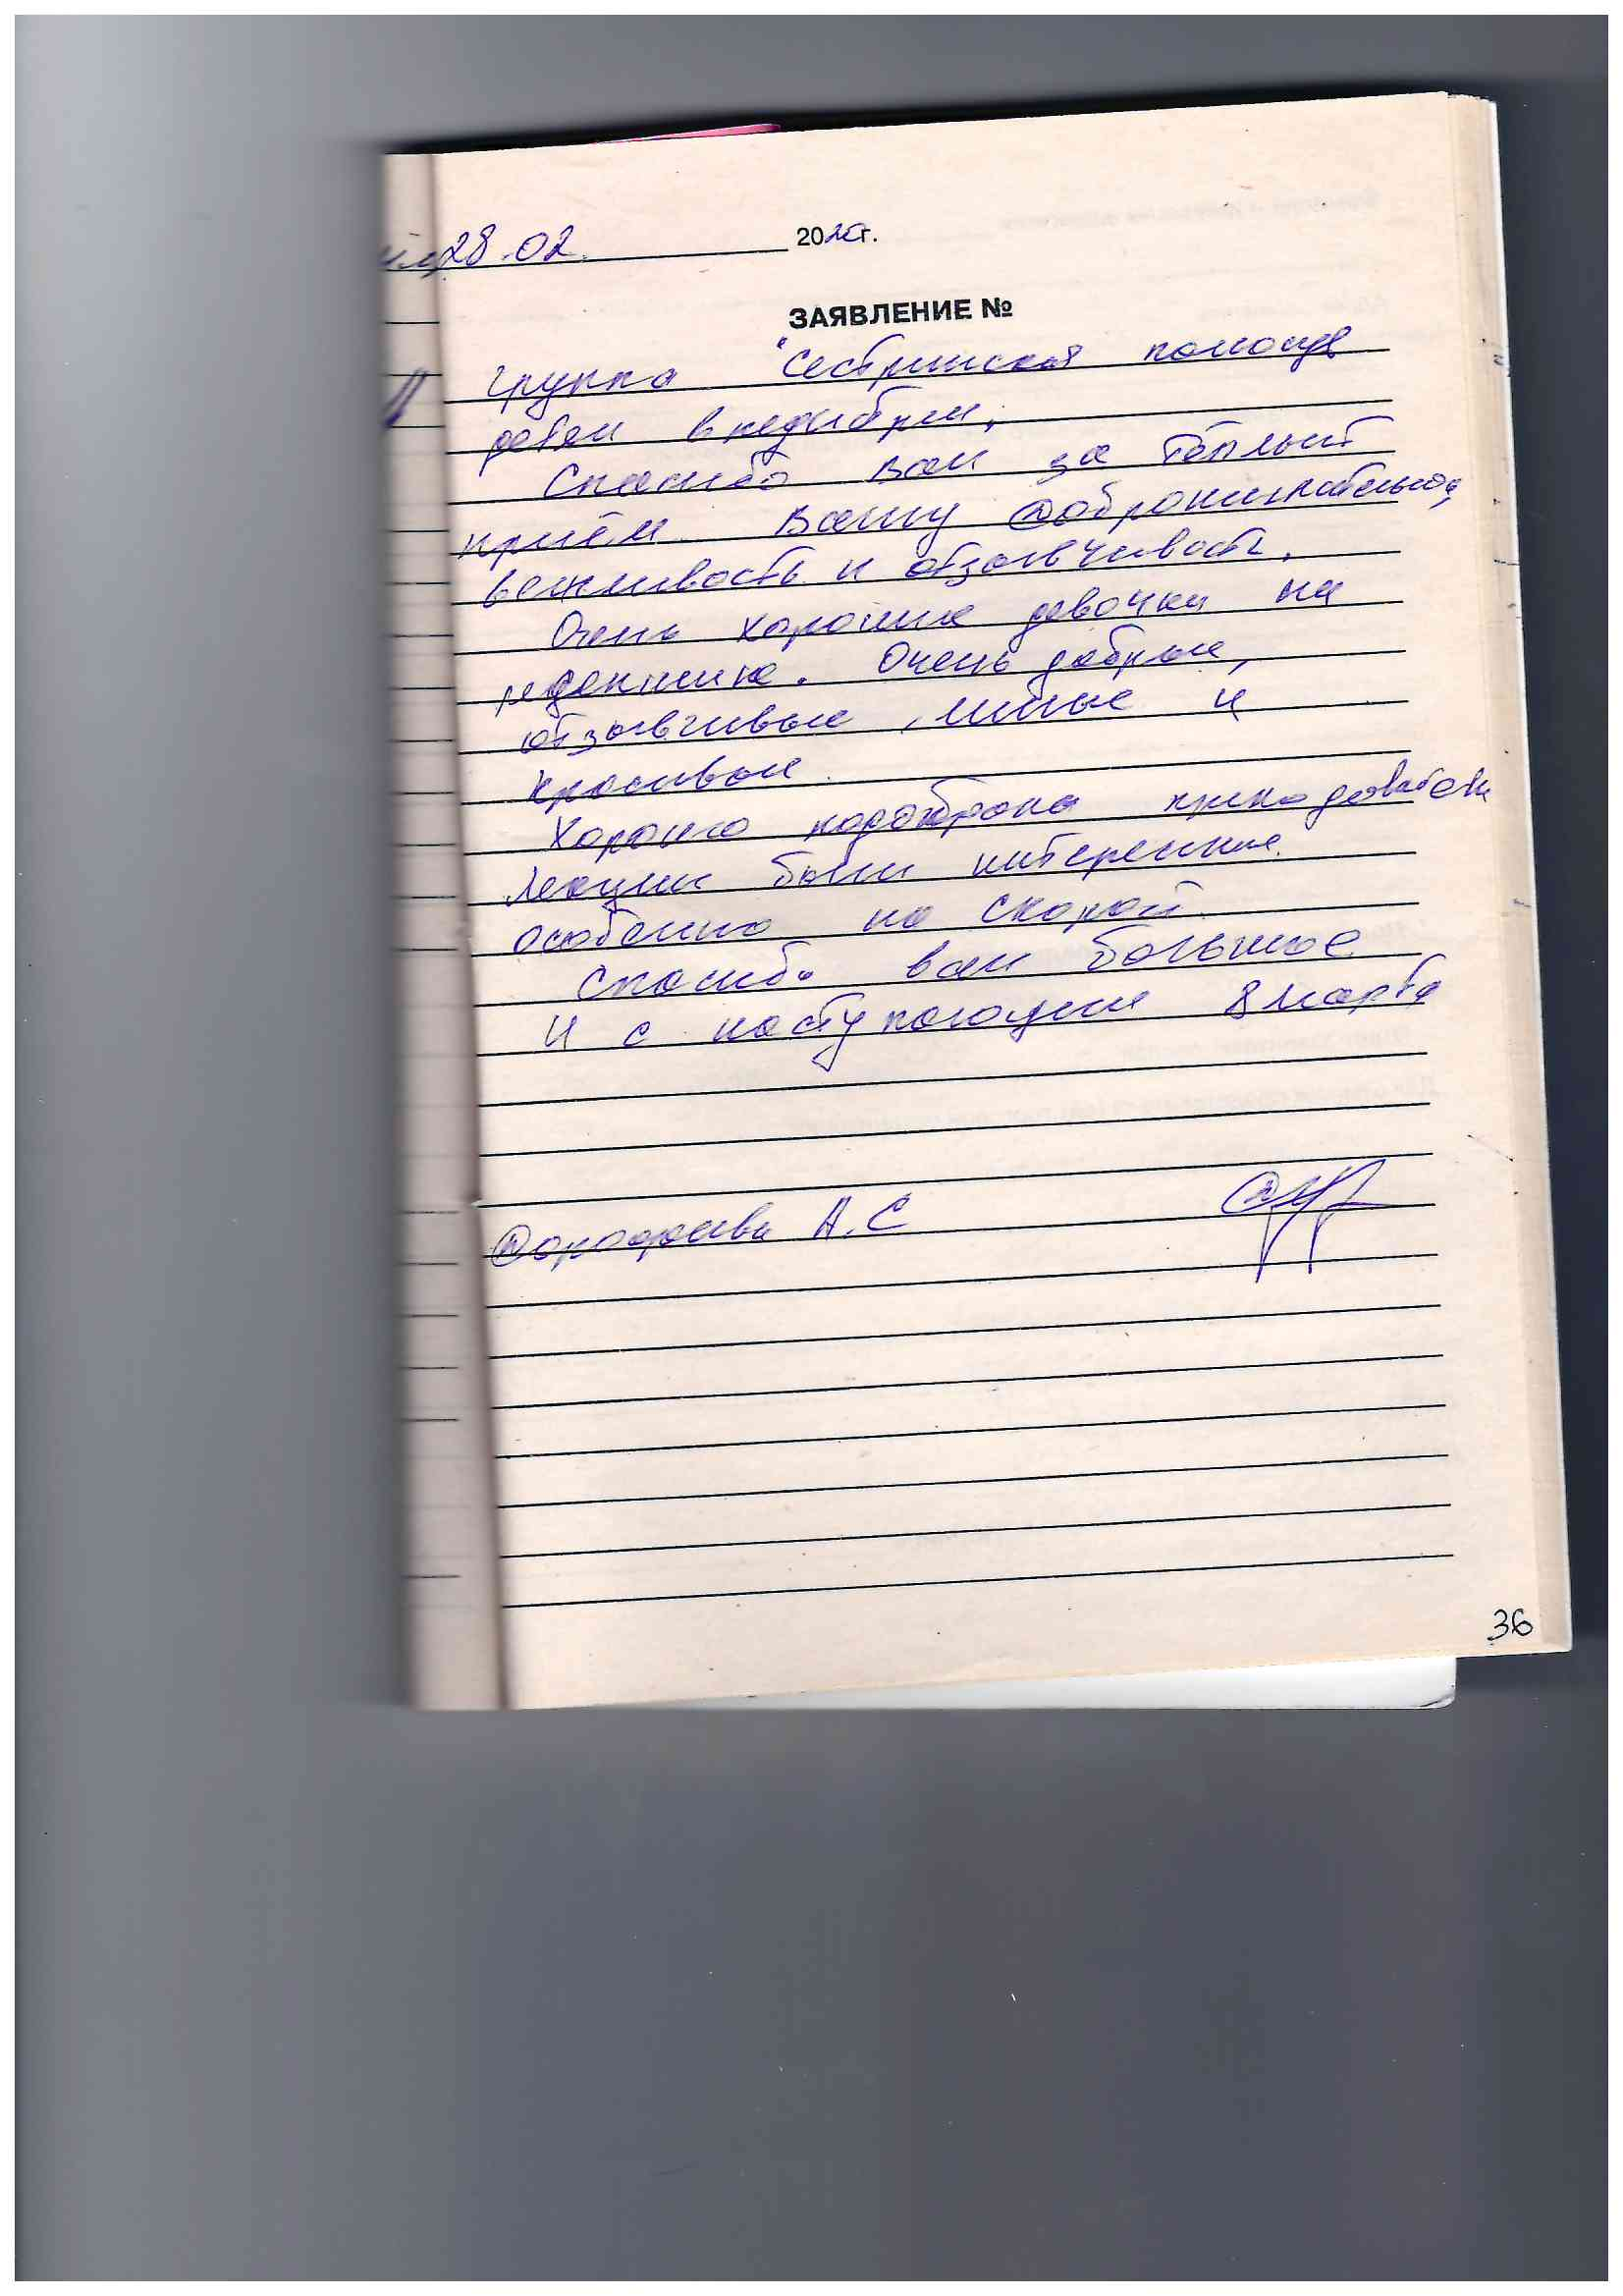 28.02. 2020г.
ЗАЯВЛЕНИЕ №
группа "Сестринская помощь
детям
Спасибо Вам за тёплый
приём. Вашу
вежливость и отзывчивость.
Очень хорошие девочки на
Очень добрые,
отзывчивые, милые и
красивые.
Хорошо подобраны
Лекции были интересные.
особенно по скорой.
Спасибо вам большое
И с наступающим 8 марта
Дорофеева А.С
36